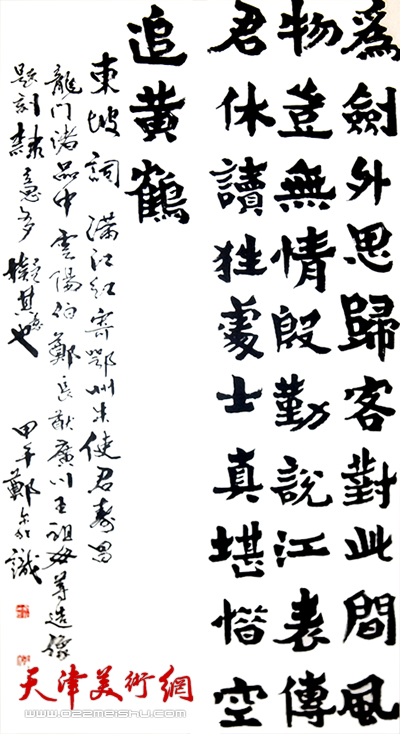 爲劍外思歸客對此間風
物豈無情殷勤說江表傳
君休讀狂處士真堪惜空
追黃鶴
東坡詞 滿江紅寄鄂州朱使君壽昌
龍门諸品中雲陽伯鄭長猷廣川王祖母等造像
題刻隸意多擬其意也
甲午鄭識
天津美術網
www.022meishu.com